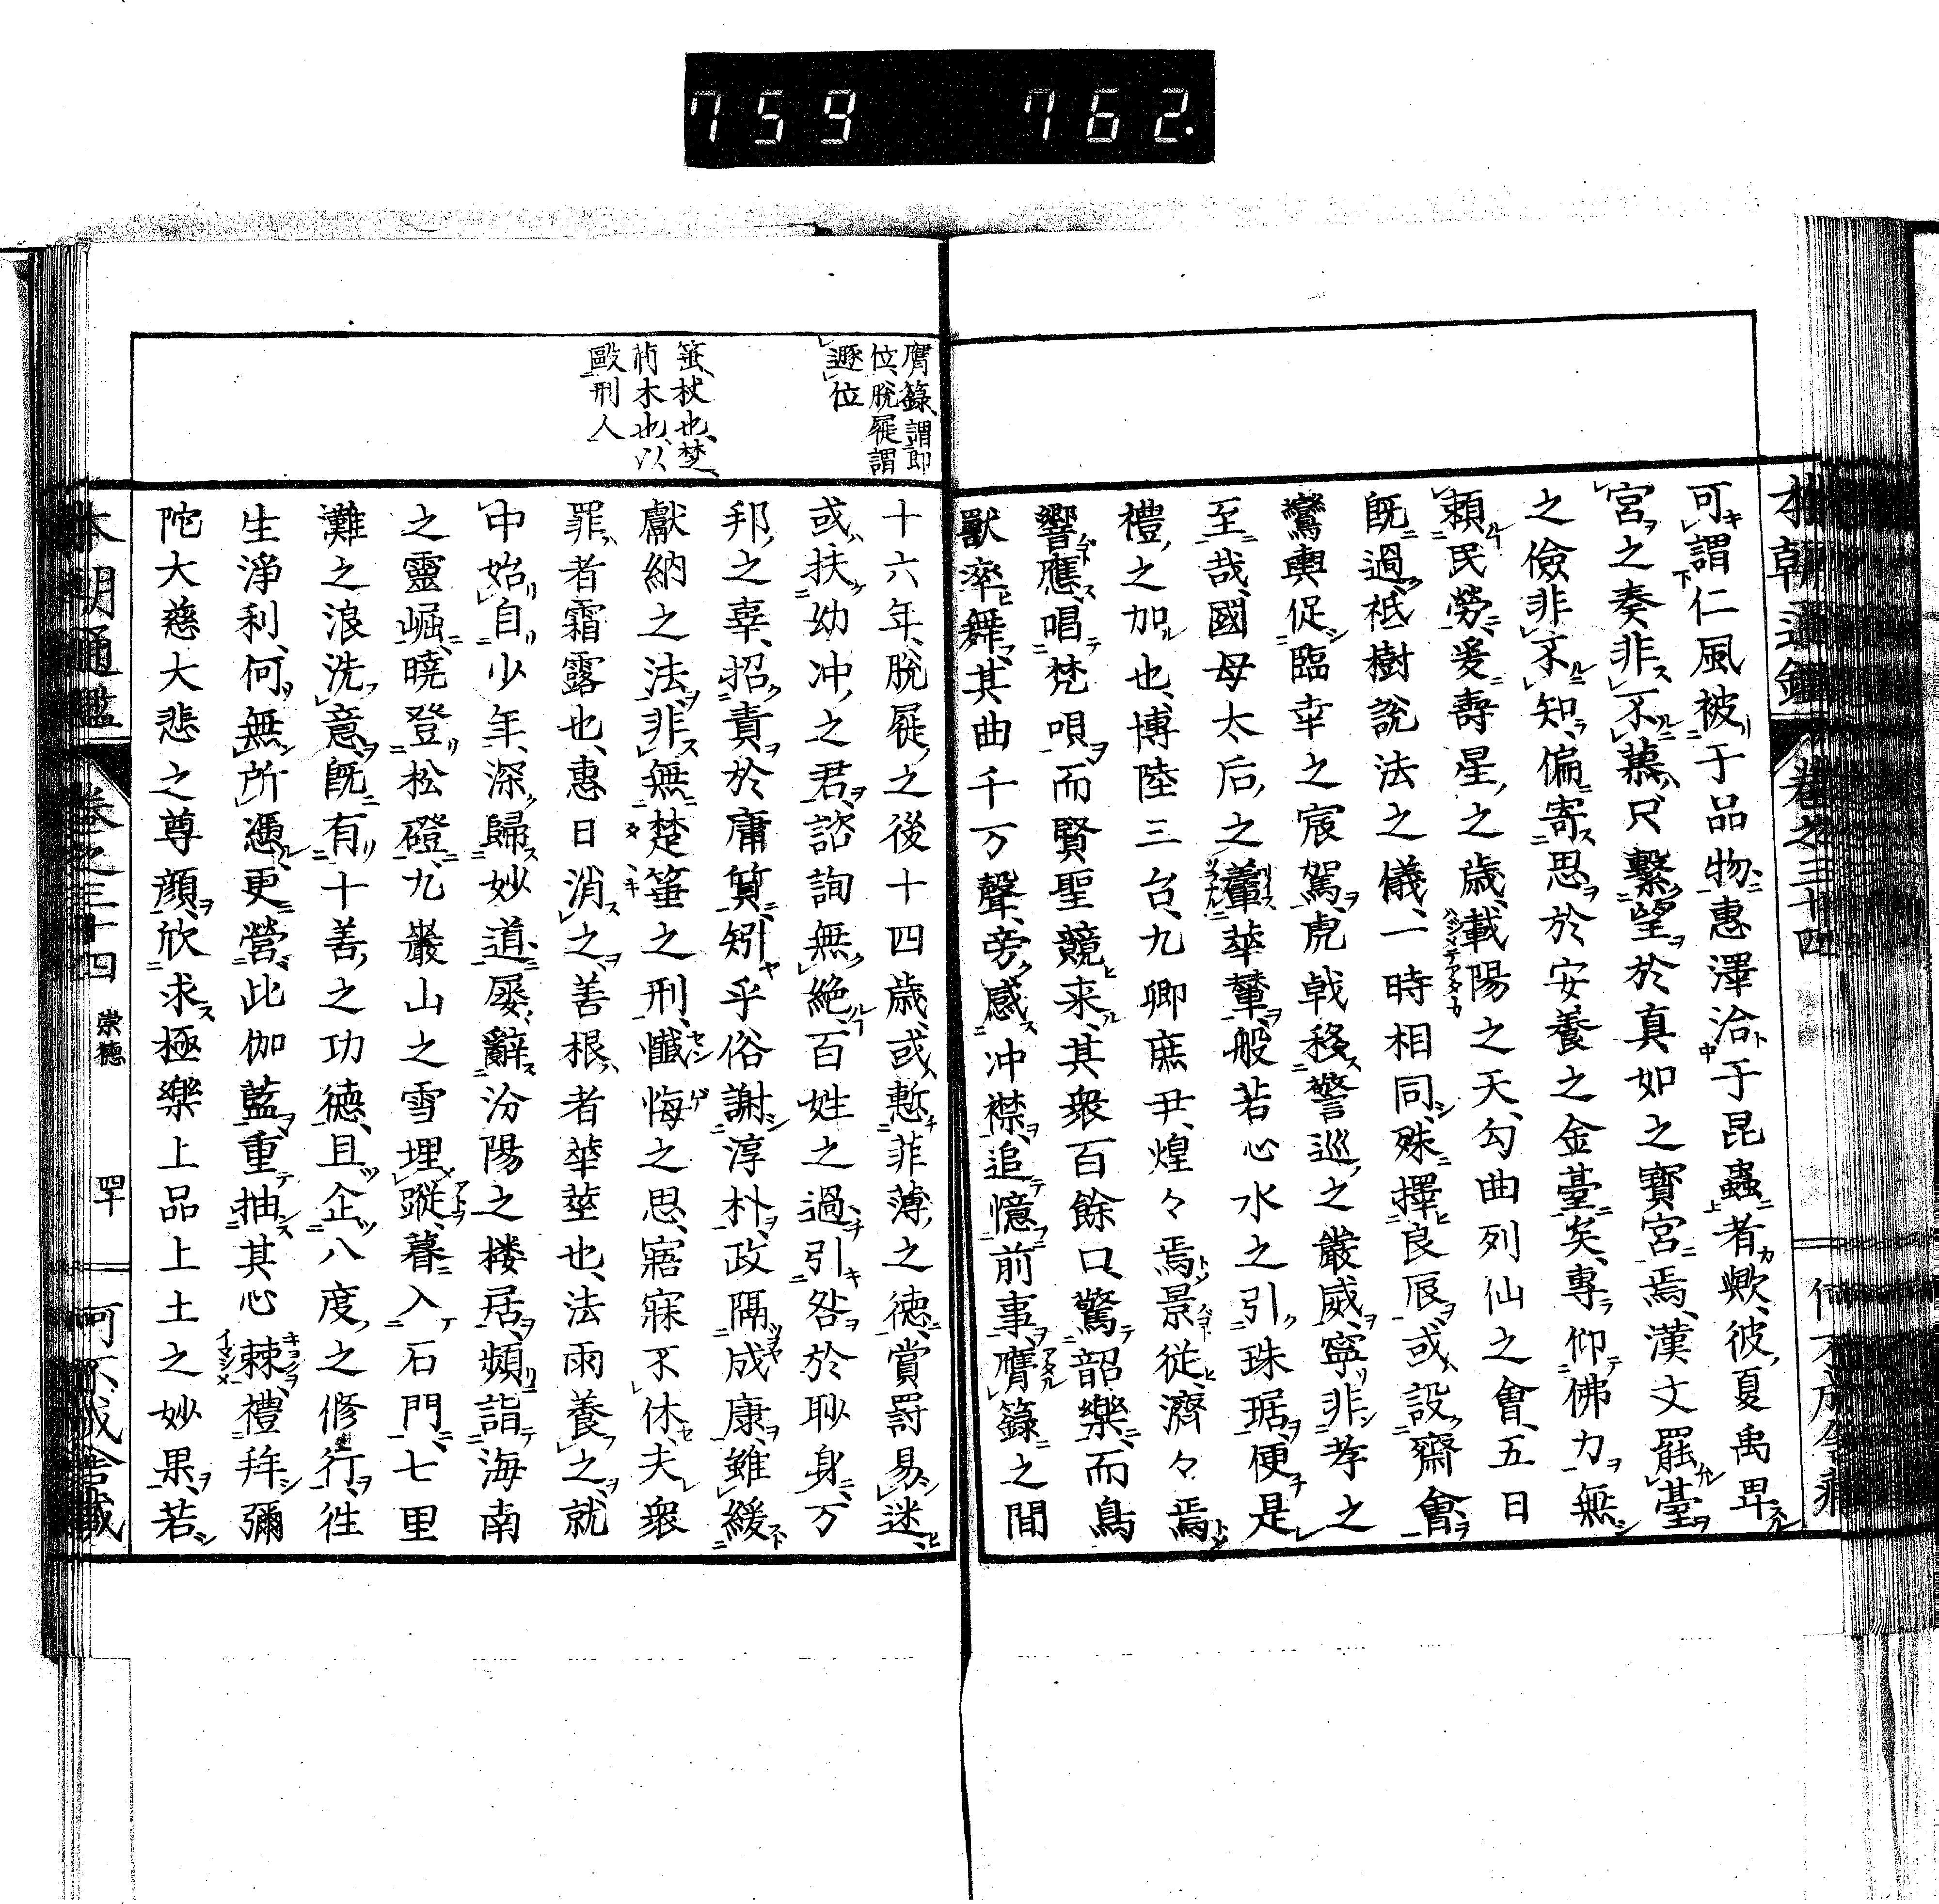 759 762.
本朝通鑑 卷之三十四
可謂仁風被于品物惠澤洽于昆蟲者歟、彼夏禹畀
宮之奏非不慕、只繫望於真如之寶宮焉、漢文罷臺
之儉非不知、偏寄思於安養之金臺矣、專仰佛力無
賴民勞、爰壽星之歲、載陽之天、勾曲列仙之會、五日
既過、祇樹說法之儀、一時相同、殊擇良辰或設齋會、
鸞輿促臨幸之宸駕、虎戟移警巡之嚴威、寧非孝之
至哉、國母太后之葷華輦、般若心水之引珠琚、便是
禮之加也、博陸三台、九卿庶尹、煌々焉景從、濟々焉
響應、唱梵唄而賢聖競來、其衆百餘口、驚韶樂而鳥
獸率舞、其曲千万聲、旁感冲襟、追憶前事、膺籙之間
十六年、脫屣之後十四歲、或慙菲薄之德、賞罰易迷、
或扶幼冲之君、諮詢無絕、百姓之過引咎於眇身、万
邦之辜、招責於庸質、矧乎俗謝淳朴、政隔成康、雖緩
獻納之法、非無楚箠之刑、懺悔之思、寤寐不休、夫衆
罪者霜露也、惠日消之、善根者華莖也、法雨養之、就
中始自少年、深歸妙道、屡辭汾陽之楼居、頻詣海南
之靈崛、曉登松磴、九巖山之雪埋蹤、暮入石門、七里
灘之浪洗意、既有十善之功德、且企八度之修行、往
生淨利、何無所憑、更營此伽藍、重抽其心棘、禮拜彌
陀大慈大悲之尊顔、欣求極樂上品上土之妙果、若
膺籙、謂即
位、脫屣謂
遜位
箠、杖也、楚、
荊木也、以
毆刑人
本朝通鑑 卷之三十四 崇德 四十